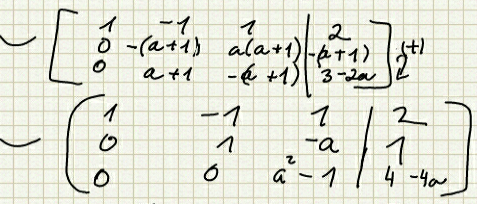 ~ [ 1 -1 1 | 2
0 -(a+1) a(a+1) | -(a+1)
0 a+1 -(a+1) | 3-2a ] (+)
~ ( 1 -1 1 | 2
0 1 -a | 1
0 0 a²-1 | 4-4a ]